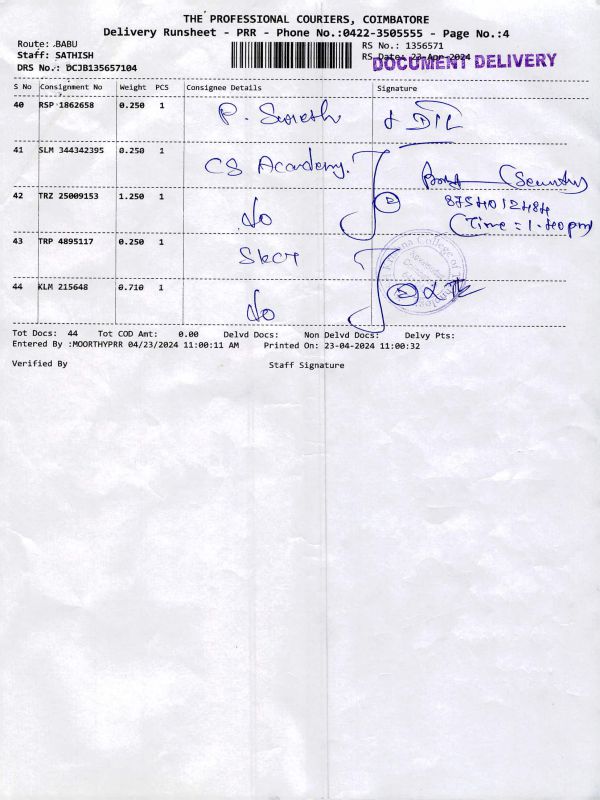 THE PROFESSIONAL COURIERS, COIMBATORE
Delivery Runsheet - PRR - Phone No.:0422-3505555 - Page No.:4
Route: BABU
RS No.: 1356571
Staff: SATHISH
RS Date: 23-Apr-2024
DOCUMENT DELIVERY
DRS No.: DCJB135657104
S No Consignment No Weight PCS Consignee Details Signature
40 RSP 1862658 0.250 1 P. Suresh
41 SLM 344342395 0.250 1 CS Academy.
(Security)
42 TRZ 25009153 1.250 1 do 2
(Time = 1.40pm)
43 TRP 4895117 0.250 1 SKCT
44 KLM 215648 0.710 1 do 2
Tot Docs: 44 Tot COD Amt: 0.00 Delvd Docs: Non Delvd Docs: Delvy Pts:
Entered By :MOORTHYPRR 04/23/2024 11:00:11 AM Printed On: 23-04-2024 11:00:32
Verified By Staff Signature